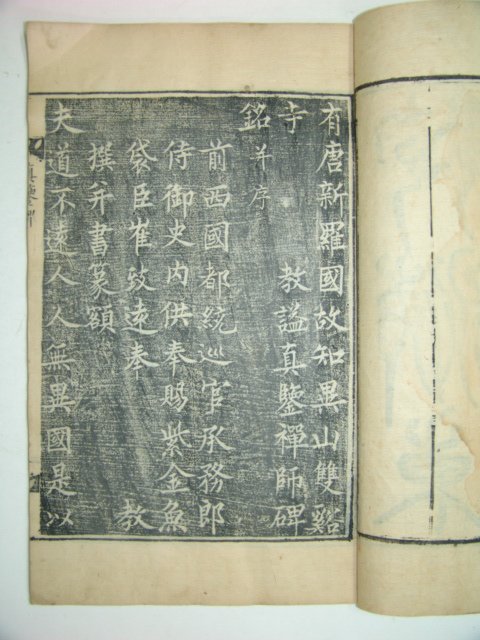 有唐新羅國故知異山雙谿
寺教謚真鑒禪師碑
銘并序
前西國都統巡官承務郎
侍御史內供奉賜紫金魚
袋臣崔致遠奉教
撰并書篆額
夫道不遠人人無異國是以